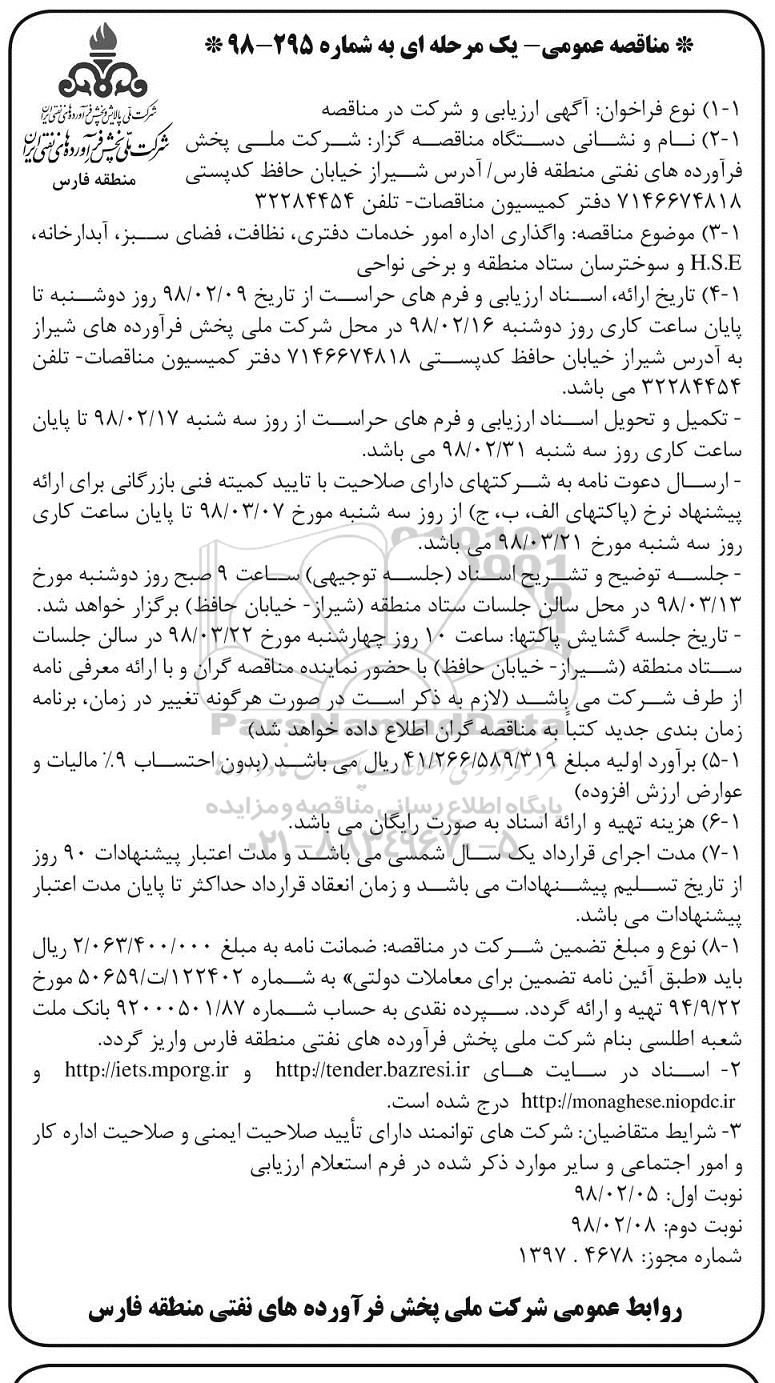 * مناقصه عمومی- یک مرحله ای به شماره ۲۹۵-۹۸ *
شرکت ملی پالایش و پخش فرآورده‌های نفتی ایران
شرکت ملی پخش فرآورده‌های نفتی ایران
منطقه فارس
۱-۱) نوع فراخوان: آگهی ارزیابی و شرکت در مناقصه
۲-۱) نام و نشانی دستگاه مناقصه گزار: شرکت ملی پخش
فرآورده های نفتی منطقه فارس/ آدرس شیراز خیابان حافظ کدپستی
۷۱۴۶۶۷۴۸۱۸ دفتر کمیسیون مناقصات- تلفن ۳۲۲۸۴۴۵۴
۳-۱) موضوع مناقصه: واگذاری اداره امور خدمات دفتری، نظافت، فضای سبز، آبدارخانه،
H.S.E و سوخترسان ستاد منطقه و برخی نواحی
۴-۱) تاریخ ارائه، اسناد ارزیابی و فرم های حراست از تاریخ ۹۸/۰۲/۰۹ روز دوشنبه تا
پایان ساعت کاری روز دوشنبه ۹۸/۰۲/۱۶ در محل شرکت ملی پخش فرآورده های شیراز
به آدرس شیراز خیابان حافظ کدپستی ۷۱۴۶۶۷۴۸۱۸ دفتر کمیسیون مناقصات- تلفن
۳۲۲۸۴۴۵۴ می باشد.
- تکمیل و تحویل اسناد ارزیابی و فرم های حراست از روز سه شنبه ۹۸/۰۲/۱۷ تا پایان
ساعت کاری روز سه شنبه ۹۸/۰۲/۳۱ می باشد.
- ارسال دعوت نامه به شرکتهای دارای صلاحیت با تایید کمیته فنی بازرگانی برای ارائه
پیشنهاد نرخ (پاکتهای الف، ب، ج) از روز سه شنبه مورخ ۹۸/۰۳/۰۷ تا پایان ساعت کاری
روز سه شنبه مورخ ۹۸/۰۳/۲۱ می باشد.
- جلسه توضیح و تشریح اسناد (جلسه توجیهی) ساعت ۹ صبح روز دوشنبه مورخ
۹۸/۰۳/۱۳ در محل سالن جلسات ستاد منطقه (شیراز- خیابان حافظ) برگزار خواهد شد.
- تاریخ جلسه گشایش پاکتها: ساعت ۱۰ روز چهارشنبه مورخ ۹۸/۰۳/۲۲ در سالن جلسات
ستاد منطقه (شیراز- خیابان حافظ) با حضور نماینده مناقصه گران و با ارائه معرفی نامه
از طرف شرکت می باشد (لازم به ذکر است در صورت هرگونه تغییر در زمان، برنامه
زمان بندی جدید کتباً به مناقصه گران اطلاع داده خواهد شد)
ParsNamadData
۵-۱) برآورد اولیه مبلغ ۴۱/۲۶۶/۵۸۹/۳۱۹ ریال می باشد (بدون احتساب ۹٪ مالیات و
عوارض ارزش افزوده)
پایگاه اطلاع رسانی مناقصه و مزایده
۶-۱) هزینه تهیه و ارائه اسناد به صورت رایگان می باشد.
۰۲۱-۸۸۳۴۹۶۷۰-۵
۷-۱) مدت اجرای قرارداد یک سال شمسی می باشد و مدت اعتبار پیشنهادات ۹۰ روز
از تاریخ تسلیم پیشنهادات می باشد و زمان انعقاد قرارداد حداکثر تا پایان مدت اعتبار
پیشنهادات می باشد.
۸-۱) نوع و مبلغ تضمین شرکت در مناقصه: ضمانت نامه به مبلغ ۲/۰۶۳/۴۰۰/۰۰۰ ریال
باید «طبق آئین نامه تضمین برای معاملات دولتی» به شماره ۱۲۲۴۰۲/ت/۵۰۶۵۹ مورخ
۹۴/۹/۲۲ تهیه و ارائه گردد. سپرده نقدی به حساب شماره ۹۲۰۰۰۵۰۱/۸۷ بانک ملت
شعبه اطلسی بنام شرکت ملی پخش فرآورده های نفتی منطقه فارس واریز گردد.
۲- اسناد در سایت های http://tender.bazresi.ir و http://iets.mporg.ir و
http://monaghese.niopdc.ir درج شده است.
۳- شرایط متقاضیان: شرکت های توانمند دارای تأیید صلاحیت ایمنی و صلاحیت اداره کار
و امور اجتماعی و سایر موارد ذکر شده در فرم استعلام ارزیابی
نوبت اول: ۹۸/۰۲/۰۵
نوبت دوم: ۹۸/۰۲/۰۸
شماره مجوز: ۴۶۷۸ . ۱۳۹۷
روابط عمومی شرکت ملی پخش فرآورده های نفتی منطقه فارس